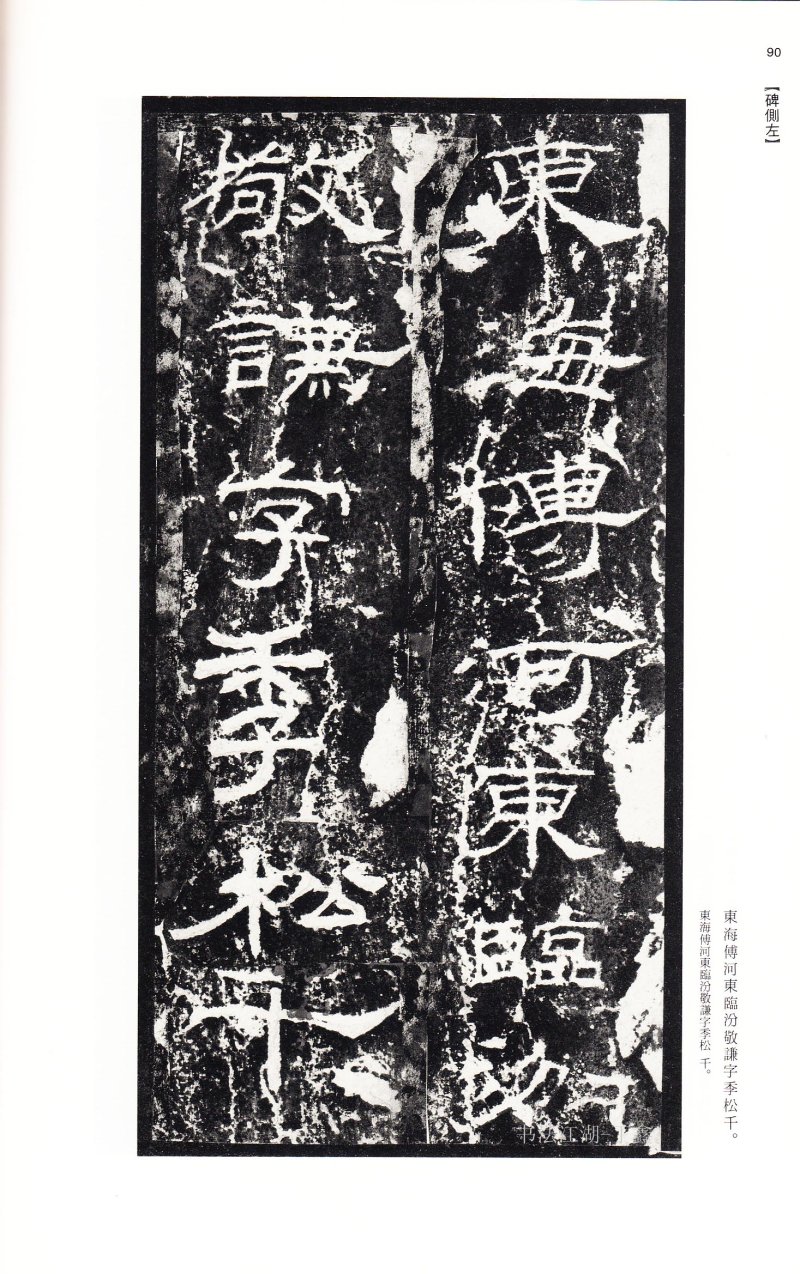 90
【碑側左】
東海傅河東臨汾
敬謙字季松千
東海傅河東臨汾敬謙字季松千。
東海傅河東臨汾敬謙字季松 千。